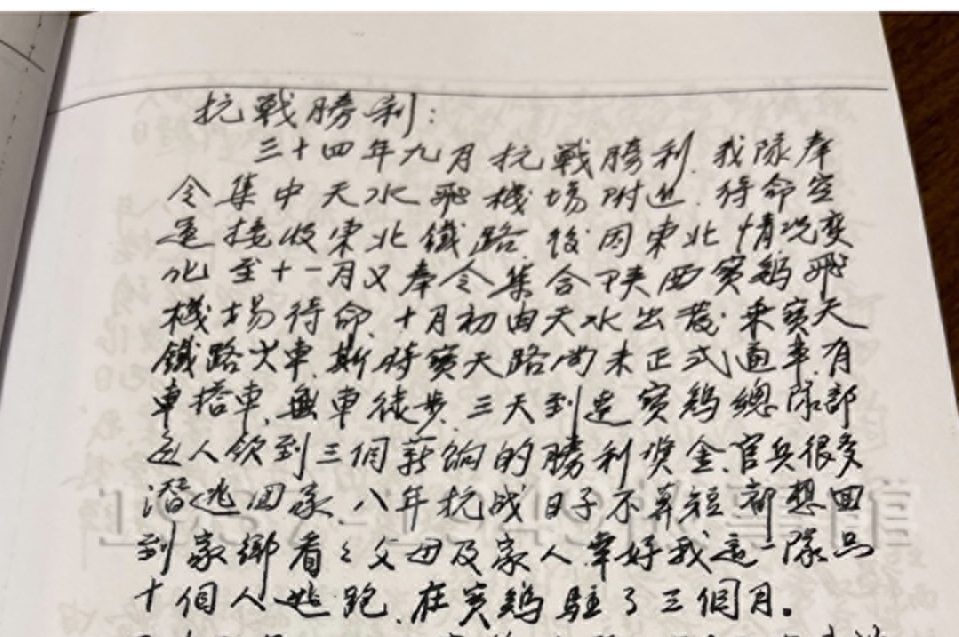 抗戰勝利:
三十四年九月抗戰勝利.我隊奉
令集中天水飛機場附近.待命空
運接收東北鐵路.後因東北情況变
化至十一月又奉令集合陕西寶鷄飛
機場待命.十月初由天水出發.乘寶天
鐵路火車.斯時寶天路尚未正式通車.有
車搭車.無車徒步.三天到達寶鷄總隊部
人領到三個薪饷的勝利奖金.官兵很多
潛逃回家.八年抗战日子不算短都想回
到家鄉看々父母及家人.幸好我這一隊只
十個人逃跑.在寶鷄駐了三個月。